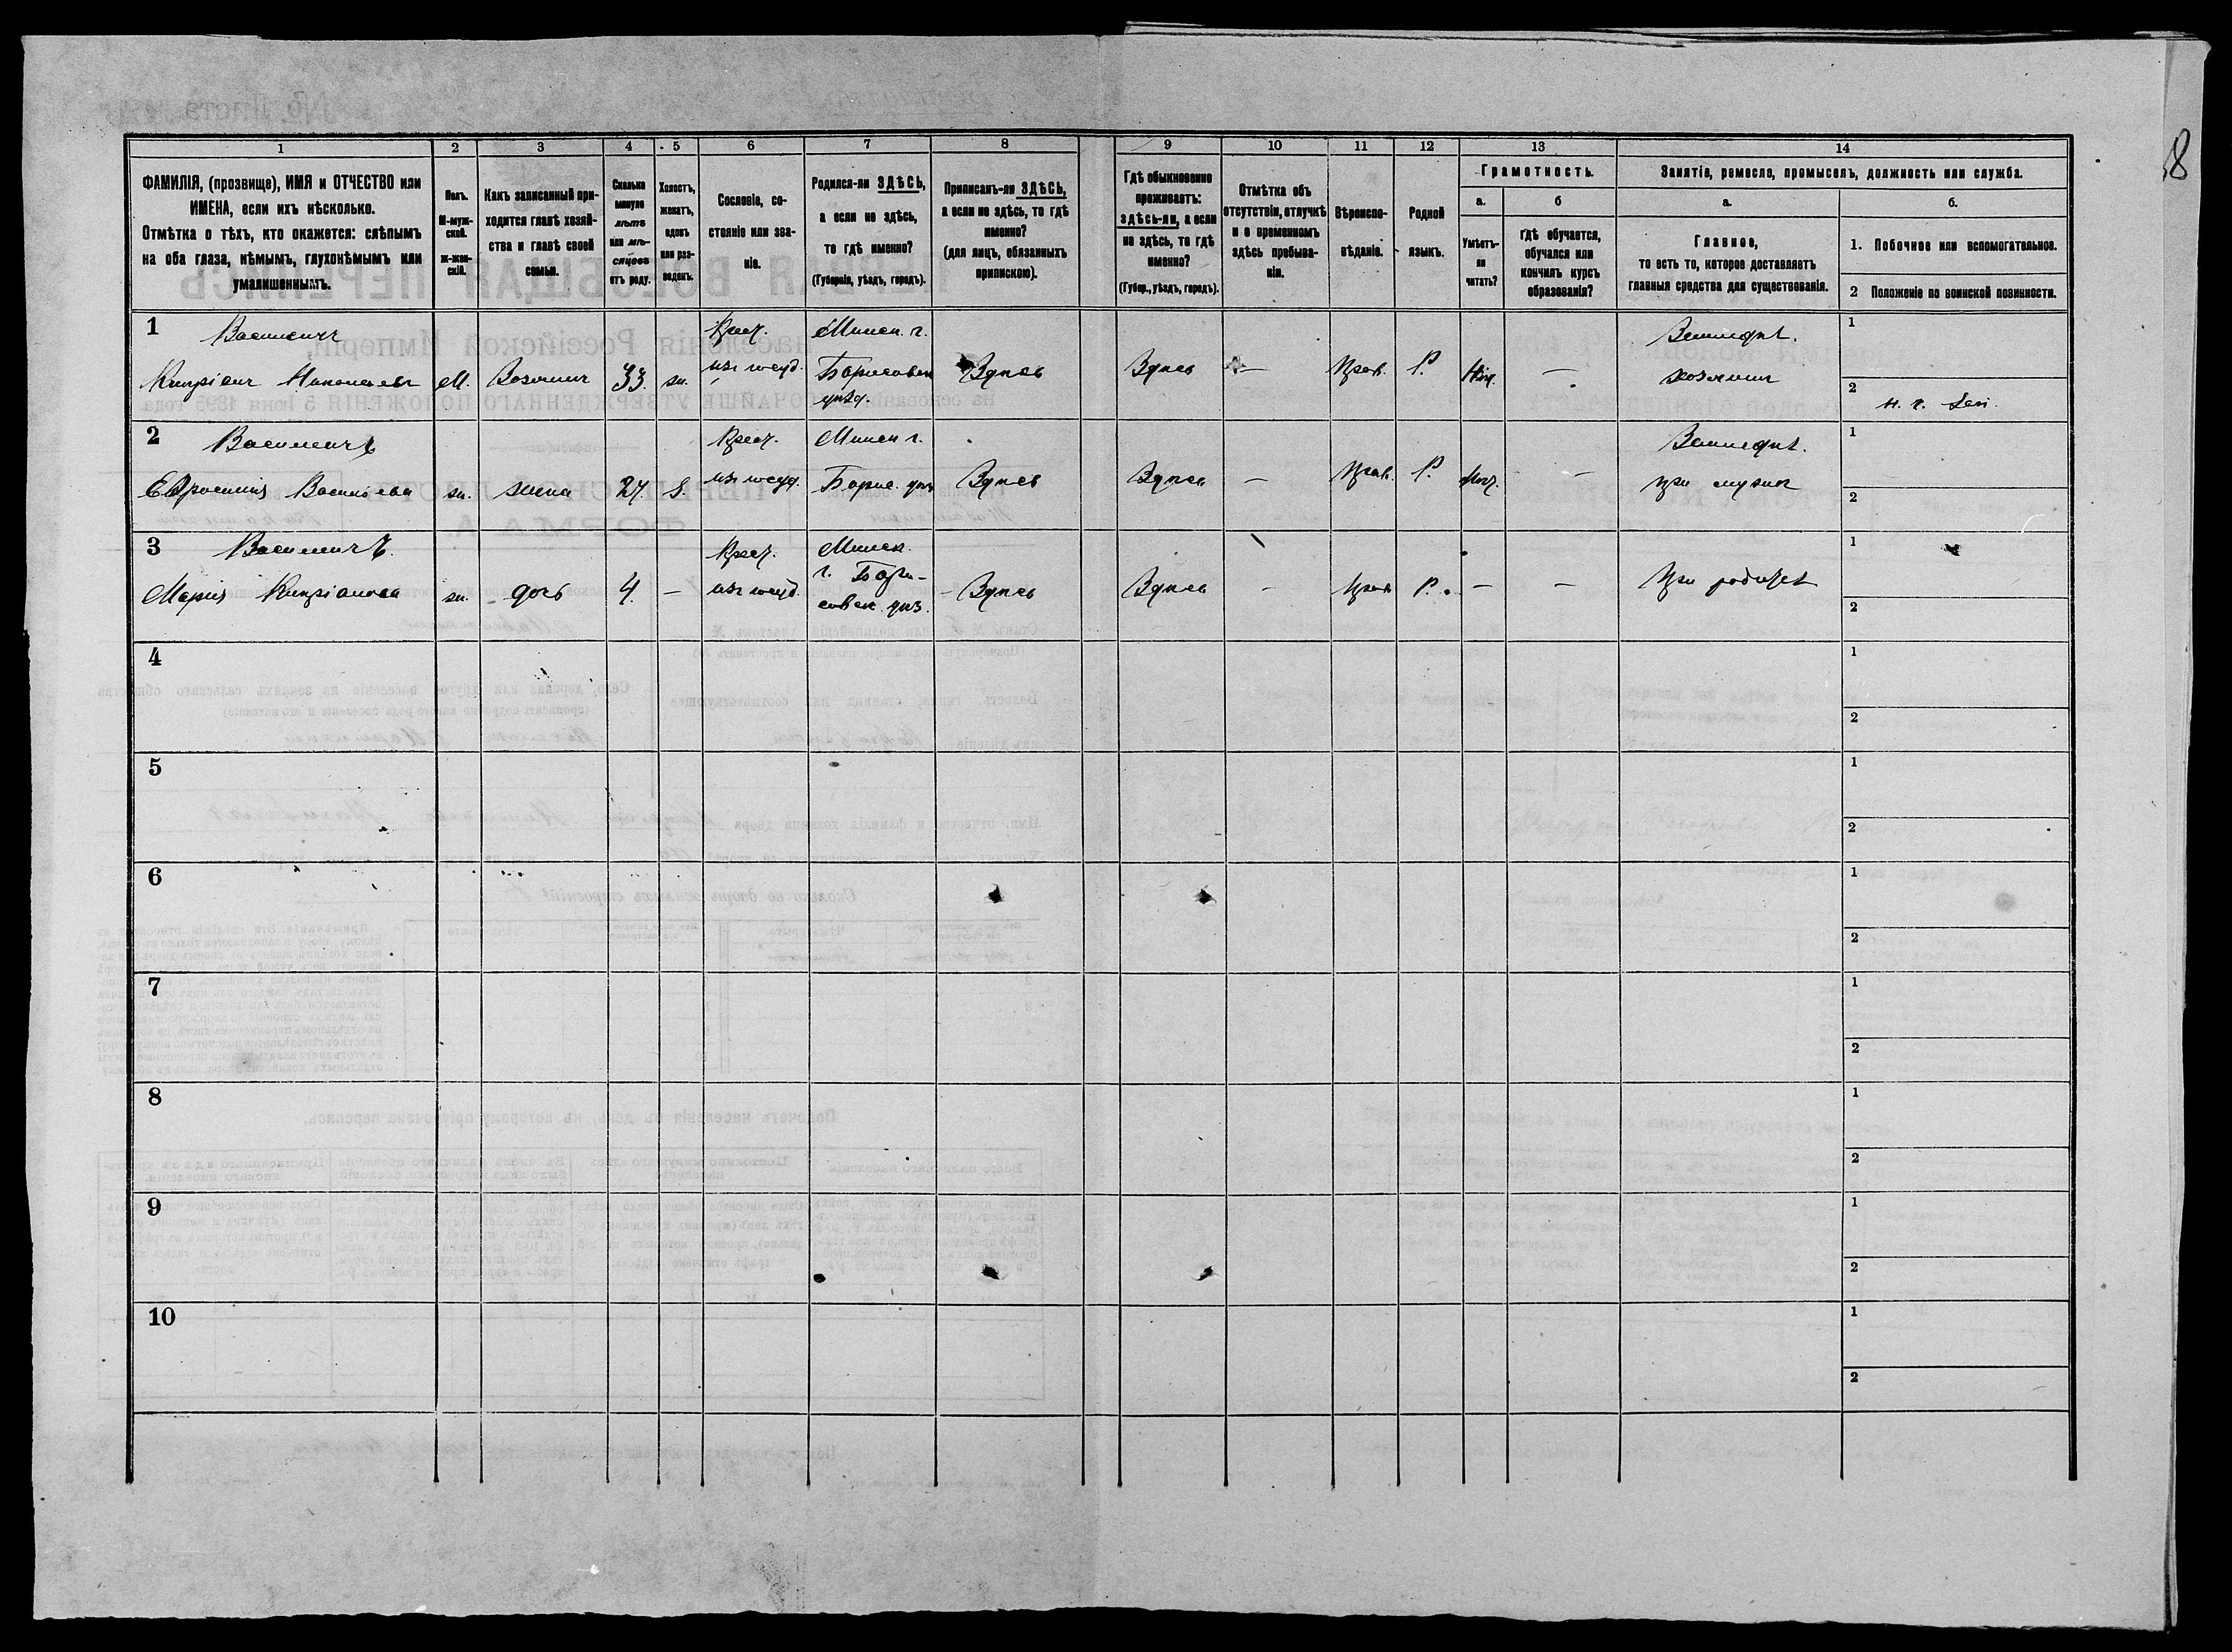 8
1 2 3 4 5 6 7 8 9 10 11 12 13 14
ФАМИЛІЯ, (прозвище), ИМЯ и ОТЧЕСТВО или
ИМЕНА, если ихъ нѣсколько.
Отмѣтка о тѣхъ, кто окажется: слѣпымъ
на оба глаза, нѣмымъ, глухонѣмымъ или
умалишеннымъ.
Полъ.
М-муж-
ской.
ж-жен-
скій.
Какъ записанный при-
ходится главѣ хозяй-
ства и главѣ своей
семьи.
Сколько
минуло
лѣтъ
или мѣ-
сяцевъ
отъ роду.
Холостъ,
женатъ,
вдовъ
или раз-
веденъ.
Сословіе, со-
стояніе или зва-
ніе.
Родился-ли ЗДѢСЬ,
а если не здѣсь,
то гдѣ именно?
(Губернія, уѣздъ, городъ).
Приписанъ-ли ЗДѢСЬ,
а если не здѣсь, то гдѣ
именно?
(для лицъ, обязанныхъ
припискою).
Гдѣ обыкновенно
проживаетъ:
здѣсь-ли, а если
не здѣсь, то гдѣ
именно?
(Губер., уѣздъ, городъ).
Отмѣтка объ
отсутствіи, отлучкѣ
и о временномъ
здѣсь пребыва-
ніи.
Вѣроиспо-
вѣданіе.
Родной
языкъ.
Грамотность.
а.
Умѣетъ-
ли
читать?
б
Гдѣ обучается,
обучался или
кончилъ курсъ
образованія?
Занятіе, ремесло, промыселъ, должность или служба.
а.
Главное,
то есть то, которое доставляетъ
главныя средства для существованія.
б.
1. Побочное или вспомогательное.
2 Положеніе по воинской повинности.
1 Василевичъ
Кипріанъ Николаевъ
М.
Хозяинъ
33.
ж.
Крест.
изъ госуд.
Минск. г.
Борисовск
уѣзд.
Здѣсь
Здѣсь
—
Прав.
Р.
Нѣт.
—
Земледѣл.
хозяинъ
1
2
2 Василевичъ
Евросинія Васильева
ж.
жена
24.
З.
Крест.
изъ госуд.
Минск г.
Борис. уѣз
Здѣсь
Здѣсь
—
Прав.
Р.
Нѣт.
—
Земледѣл.
при мужѣ
1
2
3 Василевичъ.
Марія Кипріанова
ж.
дочь
4.
—
Крест.
изъ госуд.
Минск.
г. Бори-
совск. уѣз.
Здѣсь
Здѣсь
—
Прав
Р.
—
—
При родител
1
2
4
1
2
5
1
2
6
1
2
7
1
2
8
1
2
9
1
2
10
1
2